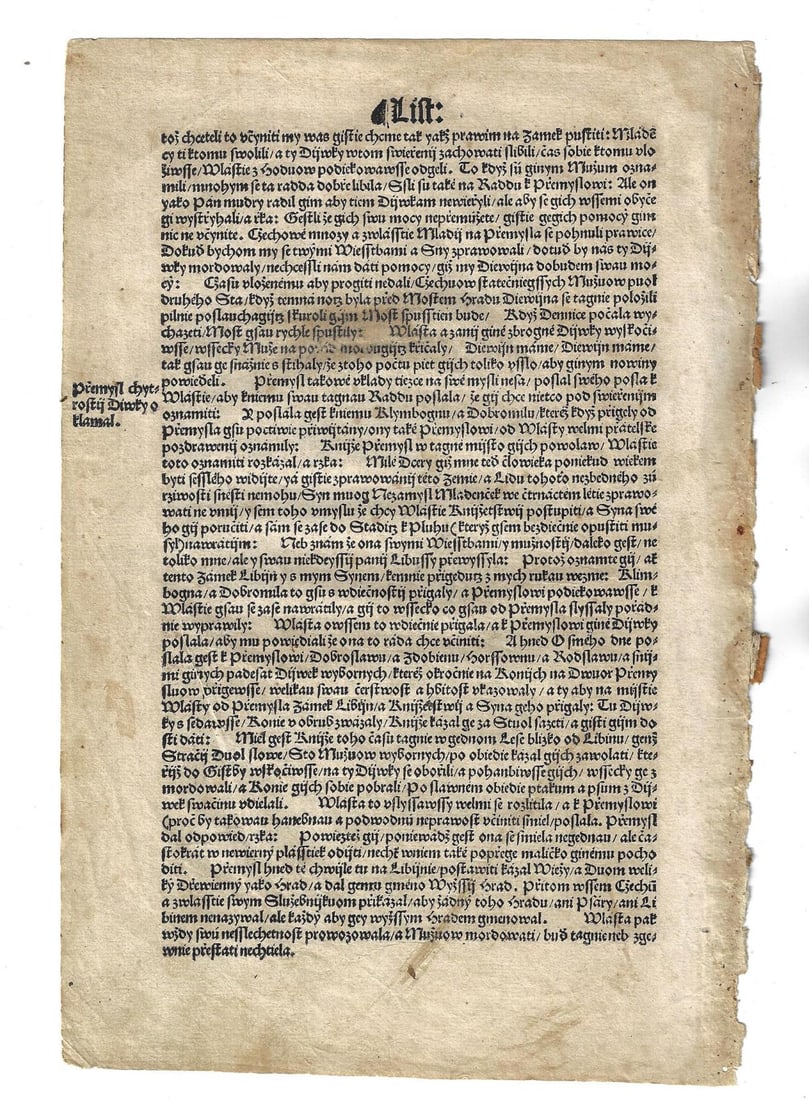 List:
tož chceteli to včyniti my was gistie chcme tak yakž prawim na Zamek pustiti: Mladē
cy ti ktomu swolili/a ty Dijwky wtom swieřenij zachowati slibili/čas sobie ktomu vlo
žiwsse/Wlastie z Hoduow podiekowawsse odgeli. To když sū giným Mužum ozna-
mili/mnohým se ta radda dobře libila/Ssli su také na Raddu k Přemyslowi: Ale on
yako Pán mudry radil gim aby tiem Dijwkam newieřyli/ale aby se gich wssemi obyče
gi wystřyhali/a řka: Gestli že gich swu mocy nepřemužete/gistie gegich pomocý gim
nic ne včynite. Czechowé mnozy a zwlásstie Mladij na Přemysla se pohnuli prawice/
Dokud bychom my se twými Wiesstbami a Sny zprawowali/dotud by nas ty Dij-
wky mordowaly/nechcessli nám dati pomocy/giž my Diewijna dobudem swau mo-
cý: Cžasu vloženému aby progiti nedali/Czechuow statečniegssych Mužuow puol
druhého Sta/když temná notz byla před Mostem Hradu Diewijna se tagnie položili
pilnie poslauchagijtz skuroli gim Most spusstien bude/ Když Dennice počala wy-
chazeti/Most gsau rychle spustily: Wlasta a zanij giné zbrogné Dijwky wyskoči-
wsse/wssecky Muže na mordugijtz křičaly/ Diewijn máme/Diewijn máme/
tak gsau ge snažnie s stihaly/že ztoho počtu piet gijch toliko vsslo/aby ginym nowiny
powiedeli. Přemysl takowé vklady tiezce na swé mysli nesa/poslal swého posla k
Přemysl chyt-
rostij Diwky o
klamal.
Wlastie/aby kniemu swau tagnau Raddu poslala/že gij chce nietco pod swieřenim
oznamiti: Y poslala gest kniemu Klymbognu/a Dobromilu/kterěž když přigely od
Přemysla gsu poctiwie přiwijtány/ony také Přemyslowi/od Wlasty welmi přátelské
pozdrawenij oznamily: Knijže Přemysl w tagné mijsto gijch powolaw/Wlastie
toto oznamiti rozkázal/a rzka: Milé Dcery giž mne teď člowieka poniekud wiekem
byti sesslého widijte/yá gistie zprawowánij této Zemie/a Lidu tohoto nezbedného zū
rziwosti snésti nemohu/Syn muog Nezamysl Mladenček we čtrnáctem létie zprawo-
wati ne vmij/y sem toho vmyslu že chcy Wlastie Knijžetstwij postupiti/a Syna swé
ho gij poručiti/a sám se zase do Staditz k Pluhu (kteryž gsem bezdiečnie opustiti mu-
syl)nawrátijm: Neb znám že ona swými Wiesstbami/y mužnostij/daleko gest/ne
toliko mne/ale y swau niekdeyssij panij Libussy přewyssyla: Protož oznamte gij/ať
tento Zámek Libijn/y s mym Synem/kemnie přigeduc z mych rukau wezme: Klim-
bogna/a Dobromila to gsu s wdiečnostij přigaly/a Přemyslowi podiekowawsse/k
Wlastie gsau se zase nawrátily/a gij to wssecko co gsau od Přemysla slyssaly pořád-
nie wyprawily: Wlasta owssem to wdiečnie přigala/a k Přemyslowi giné Dijwky
poslala/aby mu powiediali že ona to ráda chce včiniti: A hned O smého dne po-
slala gest k Přemyslowi/Dobroslawu/a Zdobienu/Horssownu/a Rodslawu/a snij-
mi giných padesat Dijwek wybornych/kterěž okročie na Konijch na Dwuor Přemy
sluow přigewsse/welikau swau čerstwost a hbitost vkazowaly/a ty aby na mijstie
Wlasty od Přemysla Zámek Libijn/a Knijžetstwij a Syna geho přigaly: Tu Dijw-
ky s sedawsse/Konie v obrub zwázaly/Knijže kázal ge za Stuol sázeti/a gisti gijm do
sti dáti: Miel gest Knijže toho času tagnie w gednom Lese blizko od Libinu/genž
Stračij Duol slowe/Sto Mužuow wybornych/po obiedie kázal gijch zawolati/kte-
řijž do Gistby wskočiwsse/na ty Dijwky se obořili/a pohanbiwsse gijch/wssecky ge z
mordowali/a Konie gijch sobie pobrali/Po slawnem obiedie ptákum a psum z Dij-
wek swačinu vdielali. Wlasta to vslyssawssy welmi se rozlitila/a k Přemyslowi
(proč by takowau hanebnau a podwodnú neprawost včiniti smiel/poslala. Přemysl
dal odpowied/rzka: Powieztěž gij/poniewadž gest ona se smiela negednau/ale ča-
stokrát w newierny plásstiek odijti/nechť wniem také popřege maličko ginému pocho
diti. Přemysl hned té chwijle tu na Libijnie/postawiti kázal Wiežy/a Duom weli-
ký Dřewienný yako Hrad/a dal gemu gméno Wyžssij Hrad. Přitom wssem Czechū
a zwlásstie swým Služebnijkuom přikázal/aby žádný toho Hradu/ani Psáry/ani Li
binem nenazywal/ale každý aby gey wyžssym Hradem gmenowal. Wlasta pak
wždy swú nesslechetnost prowozowala/a Mužuow mordowati/buď tagnie neb zge-
wnie přestati nechtiela.